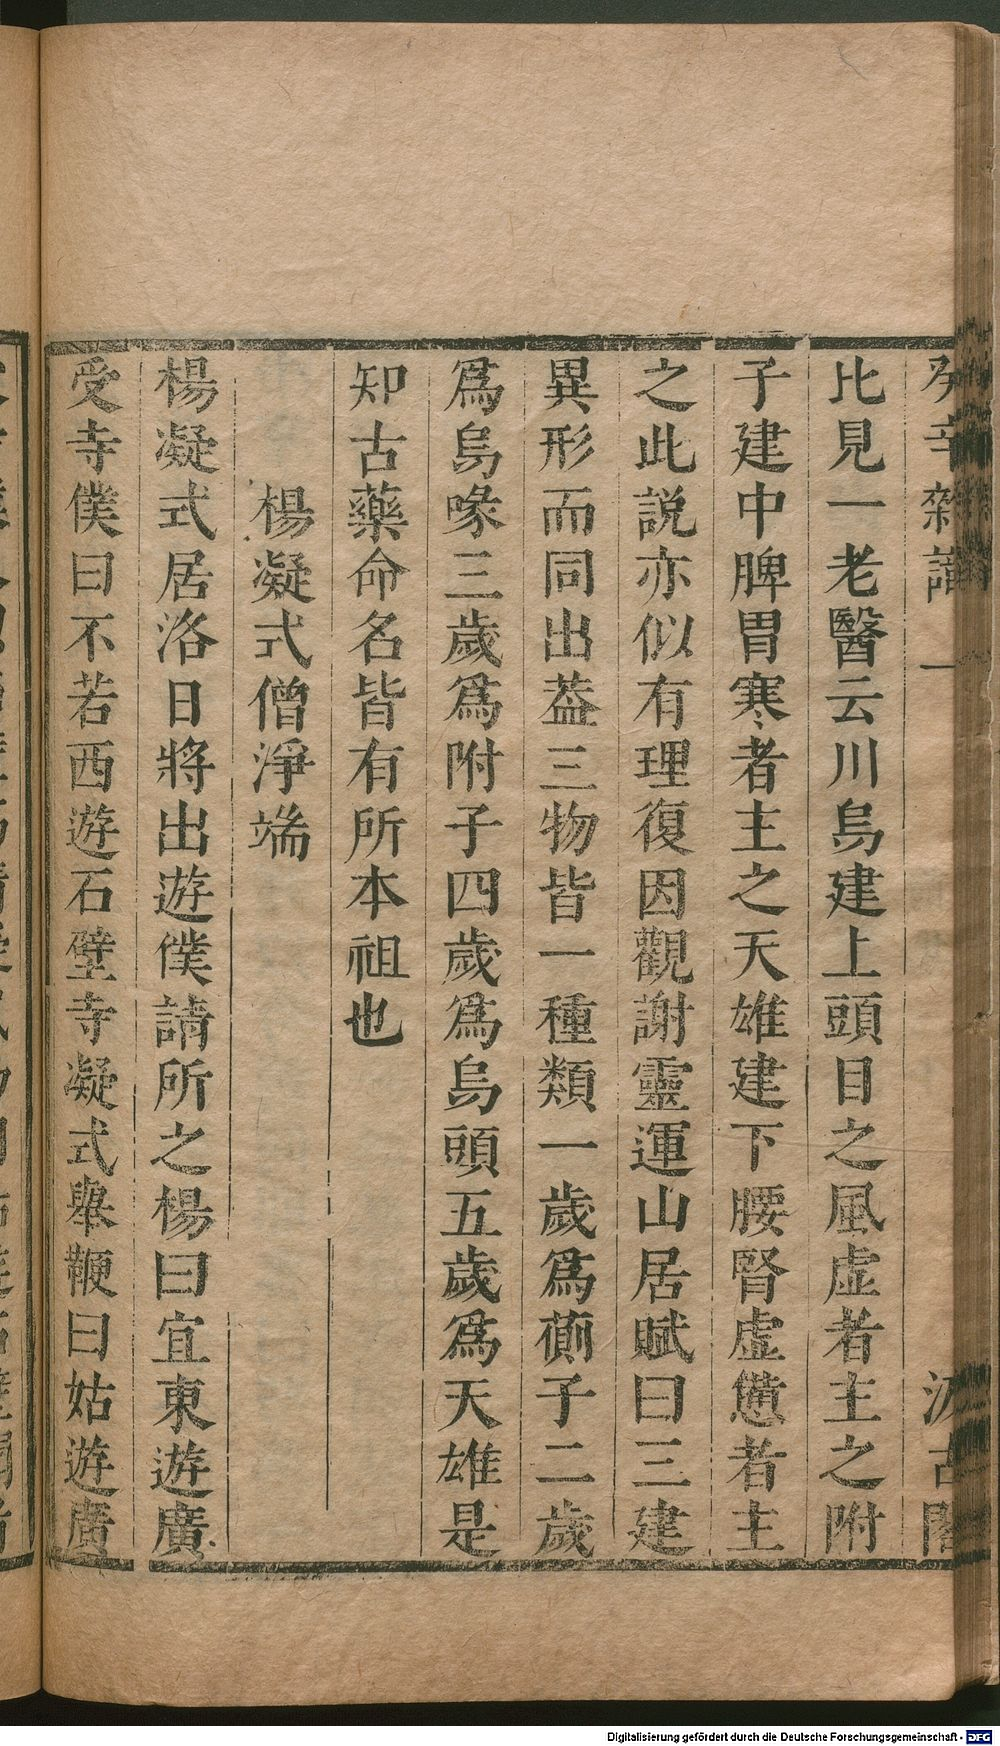 癸辛雜識 一 汲古閣
比見一老醫云川烏建上頭目之風虚者主之附
子建中脾胃寒者主之天雄建下腰腎虚憊者主
之此説亦似有理復因觀謝靈運山居賦曰三建
異形而同出葢三物皆一種類一歲爲萴子二歲
爲烏喙三歲爲附子四歲爲烏頭五歲爲天雄是
知古藥命名皆有所本祖也
楊凝式僧淨端
楊凝式居洛日將出遊僕請所之楊曰宜東遊廣
受寺僕曰不若西遊石壁寺凝式舉鞭曰姑遊廣
Digitalisierung gefördert durch die Deutsche Forschungsgemeinschaft - DFG